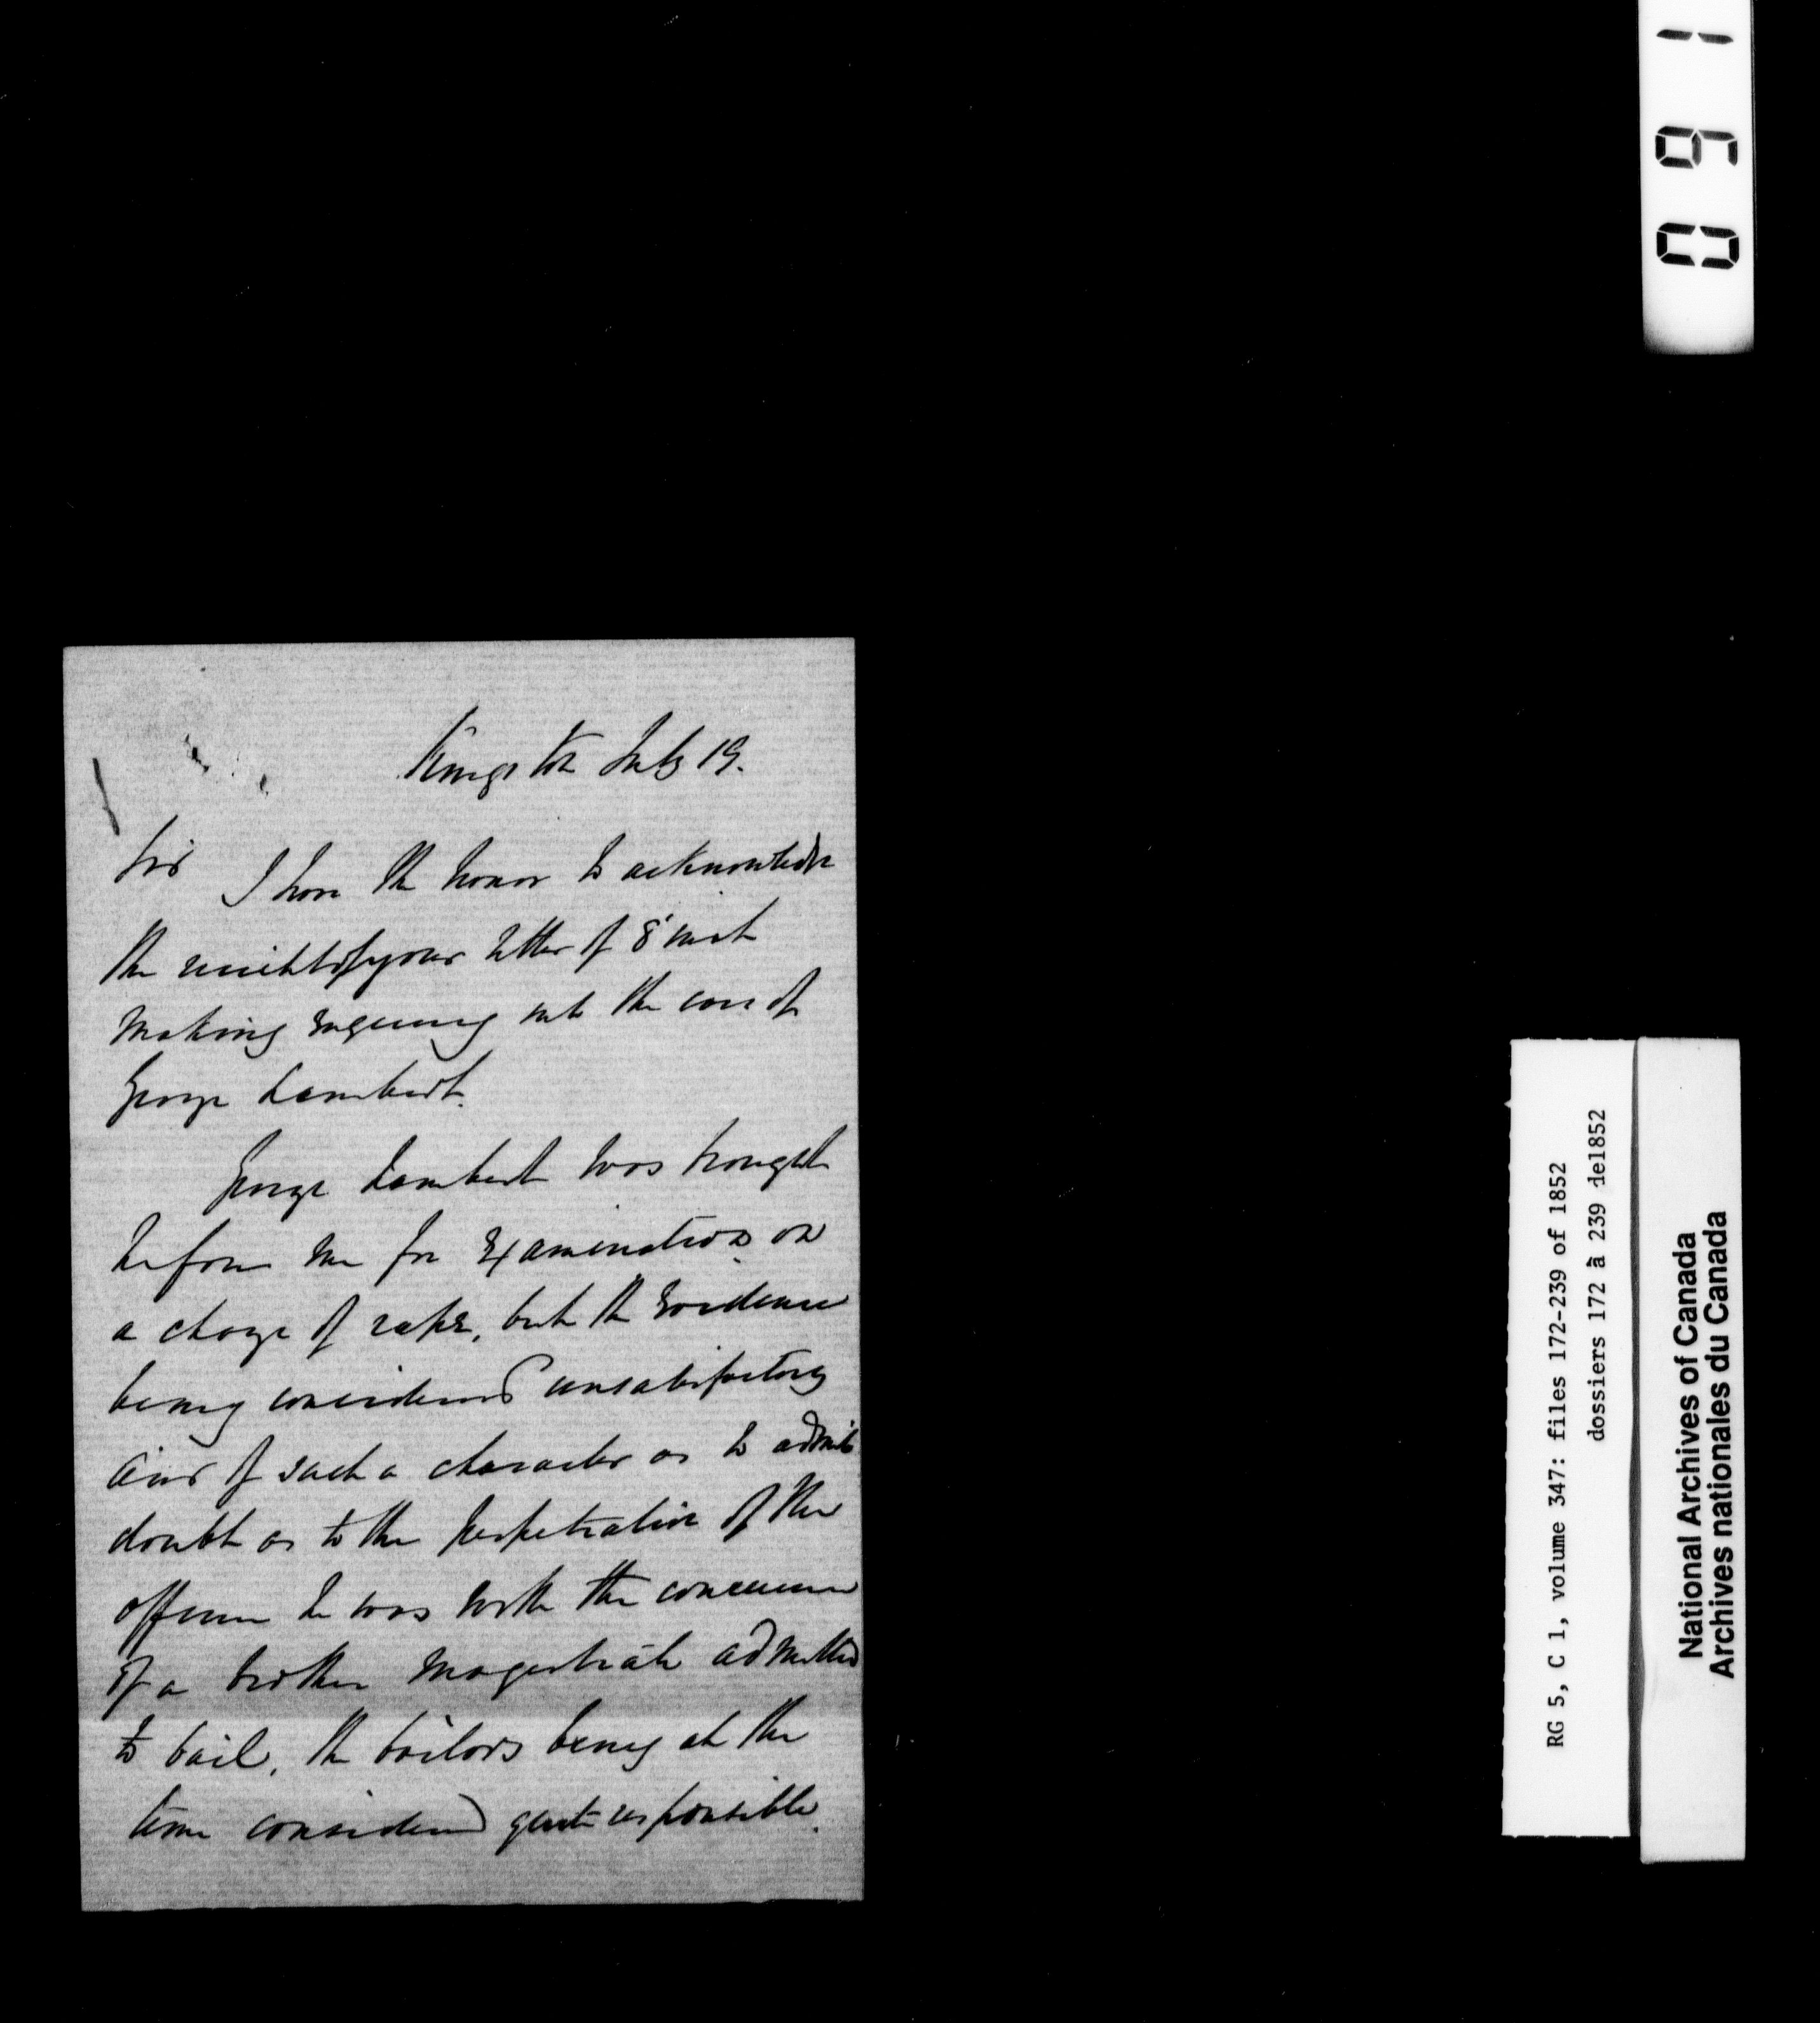 Kingston July 19.
Sir I have the honor to acknowledge
the receipt of your letter of 8 inst
making enquiry into the case of
George Lambert.
George Lambert was brought
before me for examination on
a charge of rape, but the evidence
being considered unsatisfactory
and of such a character as to admit
doubt as to the perpetration of the
offence he was with the concurrence
of a brother magistrate admitted
to bail, the bailors being at the
time considered quite responsible.
091
RG 5, C 1, volume 347: files 172-239 of 1852
dossiers 172 à 239 de1852
National Archives of Canada
Archives nationales du Canada